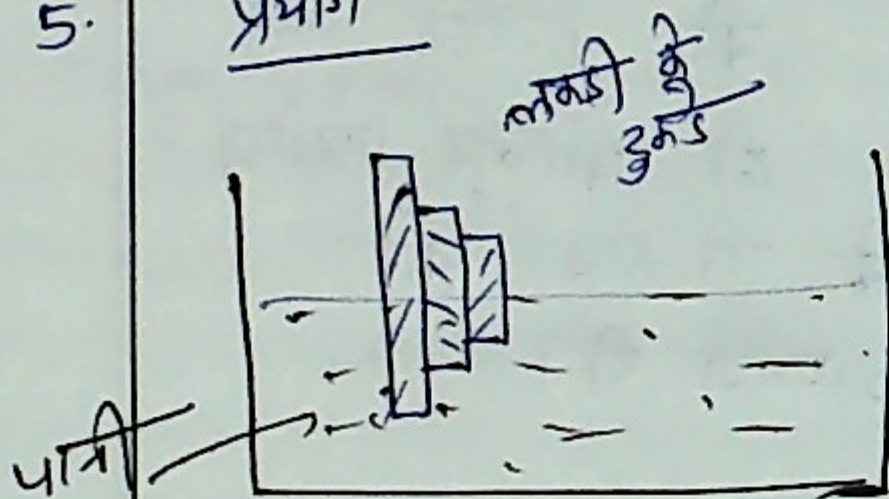 5. प्रयोग
लकडी के
टुकडे
पानी